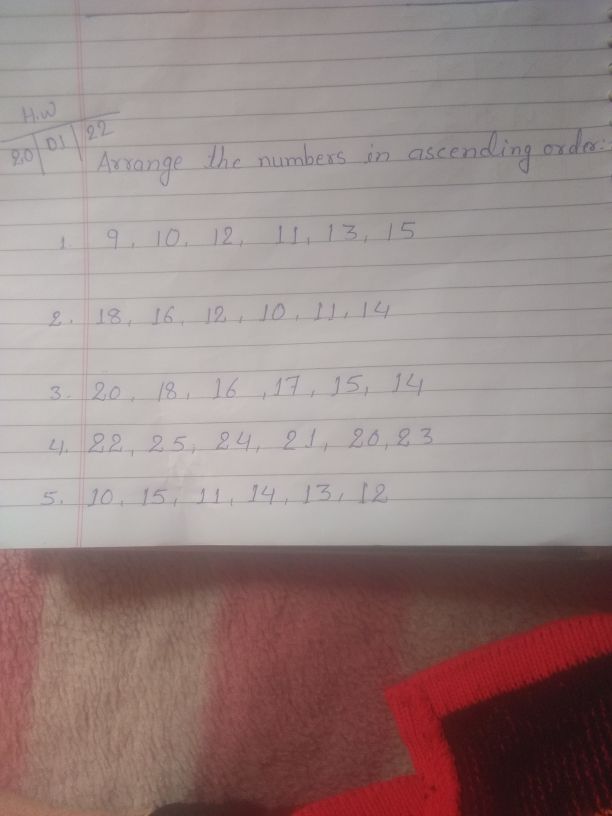 H.W
20/01/22
Arrange the numbers in ascending order:
1. 9, 10, 12, 11, 13, 15
2. 18, 16, 12, 10, 11, 14
3. 20, 18, 16, 17, 15, 14
4. 22, 25, 24, 21, 20, 23
5. 10, 15, 11, 14, 13, 12